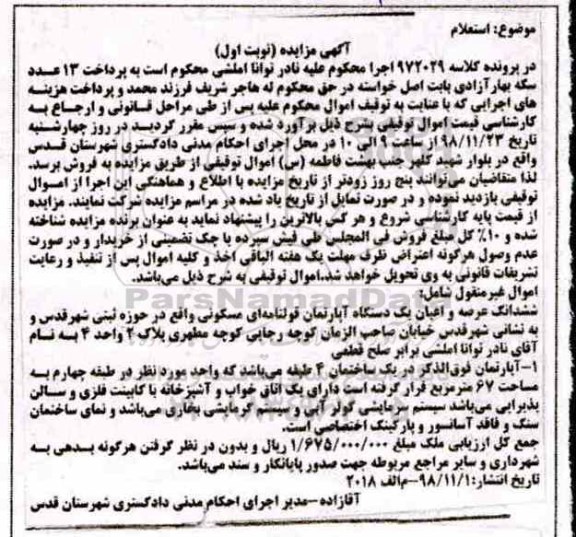 موضوع: استعلام
آگهی مزایده (نوبت اول)
در پرونده کلاسه ۹۷۲۰۲۹ اجرا محکوم علیه نادر توانا املشی محکوم است به پرداخت ۱۳ عدد
سکه بهار آزادی بابت اصل خواسته در حق محکوم له هاجر شریف فرزند محمد و پرداخت هزینه
های اجرایی که با عنایت به توقیف اموال محکوم علیه پس از طی مراحل قانونی و ارجاع به
کارشناسی قیمت اموال توقیفی بشرح ذیل برآورد شده و سپس مقرر گردید در روز چهارشنبه
تاریخ ۹۸/۱۱/۲۳ از ساعت ۹ الی ۱۰ در محل اجرای احکام مدنی دادگستری شهرستان قدس
واقع در بلوار شهید کلهر جنب بهشت فاطمه (س) اموال توقیفی از طریق مزایده به فروش برسد.
لذا متقاضیان می‌توانند پنج روز زودتر از تاریخ مزایده با اطلاع و هماهنگی این اجرا از اموال
توقیفی بازدید نموده و در صورت تمایل از تاریخ یاد شده در مراسم مزایده شرکت نمایند. مزایده
از قیمت پایه کارشناسی شروع و هر کس بالاترین را پیشنهاد نماید به عنوان برنده مزایده شناخته
شده و ۱۰٪ کل مبلغ فروش فی المجلس طی فیش سپرده یا چک تضمینی از خریدار و در صورت
عدم وصول هرگونه اعتراض ظرف مهلت یک هفته الباقی اخذ و کلیه اموال پس از تنفیذ و رعایت
تشریفات قانونی به وی تحویل خواهد شد.اموال توقیفی به شرح ذیل می‌باشد.
اموال غیرمنقول شامل:
ششدانگ عرصه و اعیان یک دستگاه آپارتمان قولنامه‌ای مسکونی واقع در حوزه ثبتی شهرقدس و
به نشانی شهرقدس خیابان صاحب الزمان کوچه رجایی کوچه مطهری پلاک ۲ واحد ۴ به نام
آقای نادر توانا املشی برابر صلح قطعی
۱-آپارتمان فوق‌الذکر در یک ساختمان ۴ طبقه می‌باشد که واحد مورد نظر در طبقه چهارم به
مساحت ۶۷ مترمربع قرار گرفته است دارای یک اتاق خواب و آشپزخانه با کابینت فلزی و سالن
پذیرایی می‌باشد سیستم سرمایشی کولر آبی و سیستم گرمایشی بخاری می‌باشد و نمای ساختمان
سنگ و فاقد آسانسور و پارکینگ اختصاصی است.
جمع کل ارزیابی ملک مبلغ ۱/۶۷۵/۰۰۰/۰۰۰ ریال و بدون در نظر گرفتن هرگونه بدهی به
شهرداری و سایر مراجع مربوطه جهت صدور پایانکار و سند می‌باشد.
تاریخ انتشار: ۹۸/۱۱/۱-م/الف ۲۰۱۸
آقازاده-مدیر اجرای احکام مدنی دادگستری شهرستان قدس
ParsNamadData